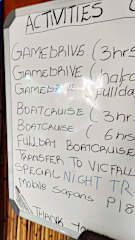 ACTIVITIES
GAMEDRIVE (3hrs
GAMEDRIVE (half
GAMEDRIVE (fullday
BOATCRUISE (3hr
BOATCRUISE (6hrs
FULLDAY BOATCRUISE
TRANSFER TO VICFALL
SPECIAL NIGHT TR
Mobile Safaris P18
THANK